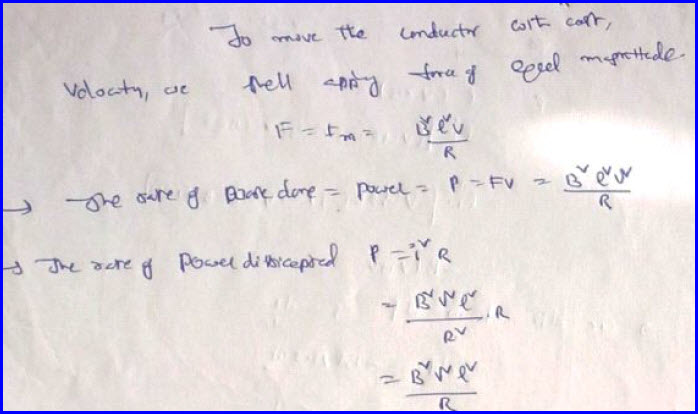 To move the conductor with cost,
Velocity, we shell apply force of eqeel magnettede.
F = Fm = B²l²v / R
→ The rate of work done = power = P = FV = B²l²v² / R
→ The rate of Power dissicepted P = i² R
= B²v²l² / R² . R
= B²v²l² / R